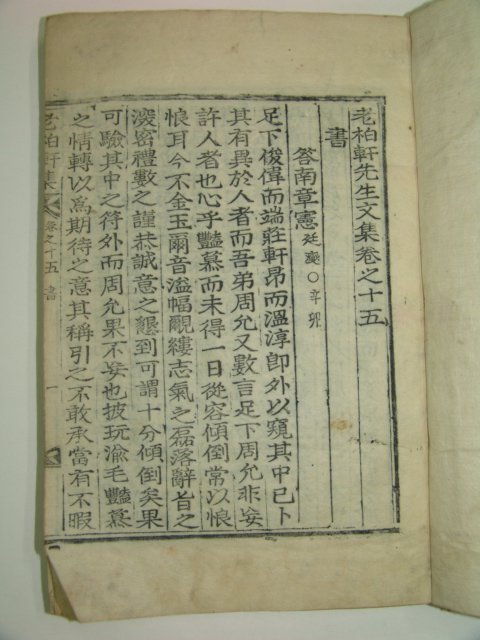 老柏軒先生文集卷之十五
書
答南章憲 廷燮○辛卯
足下俊偉而端莊軒昂而溫淳卽外以窺其中已卜
其有異於人者而吾弟周允又數言足下周允非妄
許人者也心乎豔慕而未得一日從容傾倒常以恨
恨耳今不金玉爾音溢幅覼縷志氣之磊落辭旨之
濃密禮數之謹恭誠意之懇到可謂十分傾倒矣果
可驗其中之符外而周允果不妄也披玩渝毛豔慕
之情轉以爲期待之意其稱引之不敢承當有不暇
老柏軒集 卷之十五 書 一